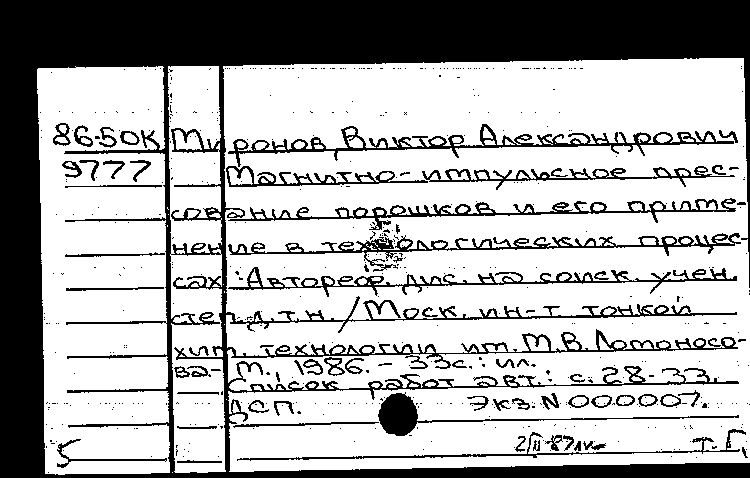 86-50К Миронов, Виктор Александрович
9777 Магнитно-импульсное прес-
сование порошков и его приме-
нение в технологических процес-
сах : Автореф. дис. на соиск. учен.
степ. д.т.н. / Моск. ин-т тонкой
хим. технологии им. М.В. Ломоносо-
ва. - М., 1986. - 33с. : ил.
Список работ авт.: с. 28-33.
ДСП. Экз. N 000007.
5 Т. Г.